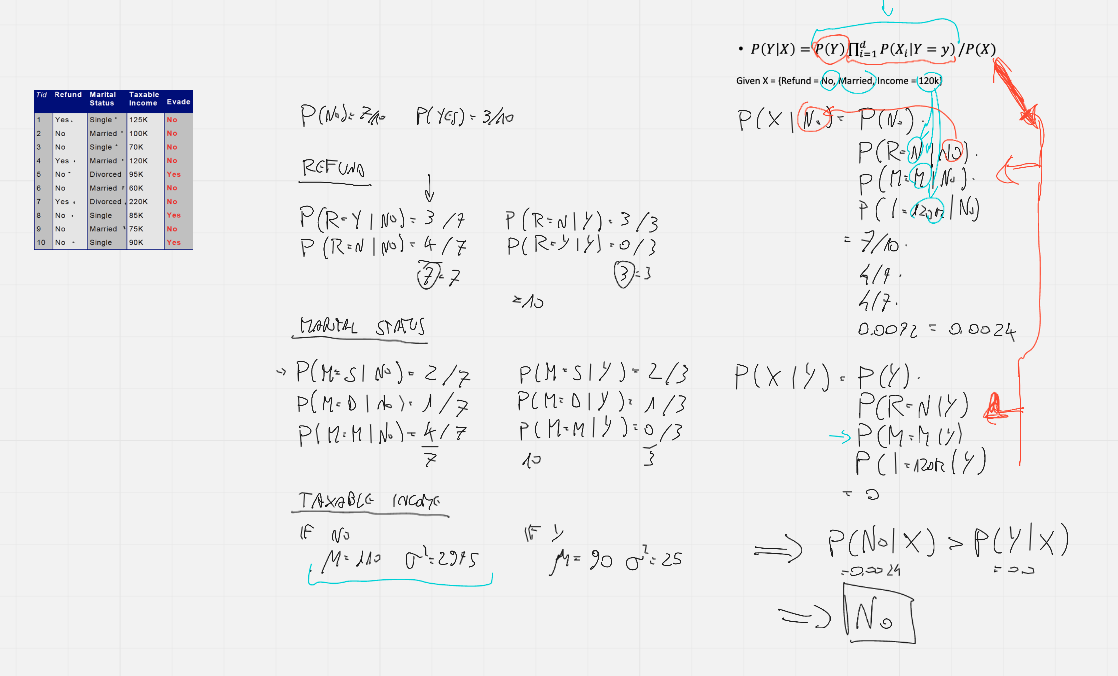 Tid Refund Marital Status Taxable Income Evade
1 Yes Single 125K No
2 No Married 100K No
3 No Single 70K No
4 Yes Married 120K No
5 No Divorced 95K Yes
6 No Married 60K No
7 Yes Divorced 220K No
8 No Single 85K Yes
9 No Married 75K No
10 No Single 90K Yes
P(No)=7/10 P(YES)=3/10
REFUND
P(R=Y|No)=3/7 P(R=N|Y)=3/3
P(R=N|No)=4/7 P(R=Y|Y)=0/3
7=7 3=3
=10
MARITAL STATUS
→ P(M=S|No)=2/7 P(M=S|Y)=2/3
P(M=D|No)=1/7 P(M=D|Y)=1/3
P(M=M|No)=4/7 P(M=M|Y)=0/3
7 10 3
TAXABLE INCOME
IF No IF Y
μ=110 σ²=2975 μ=90 σ²=25
• P(Y|X) = P(Y) ∏ᵈᵢ₌₁ P(Xᵢ|Y = y) /P(X)
Given X = {Refund = No, Married, Income = 120k}
P(X|No)= P(No)·
P(R=N|No)·
P(M=M|No)·
P(I=120K|No)
= 7/10·
4/7·
4/7·
0.0072 = 0.0024
P(X|Y)= P(Y)·
P(R=N|Y)
→ P(M=M|Y)
P(I=120K|Y)
= 0
⇒ P(No|X) > P(Y|X)
=0.0024 =0.0
⇒ No